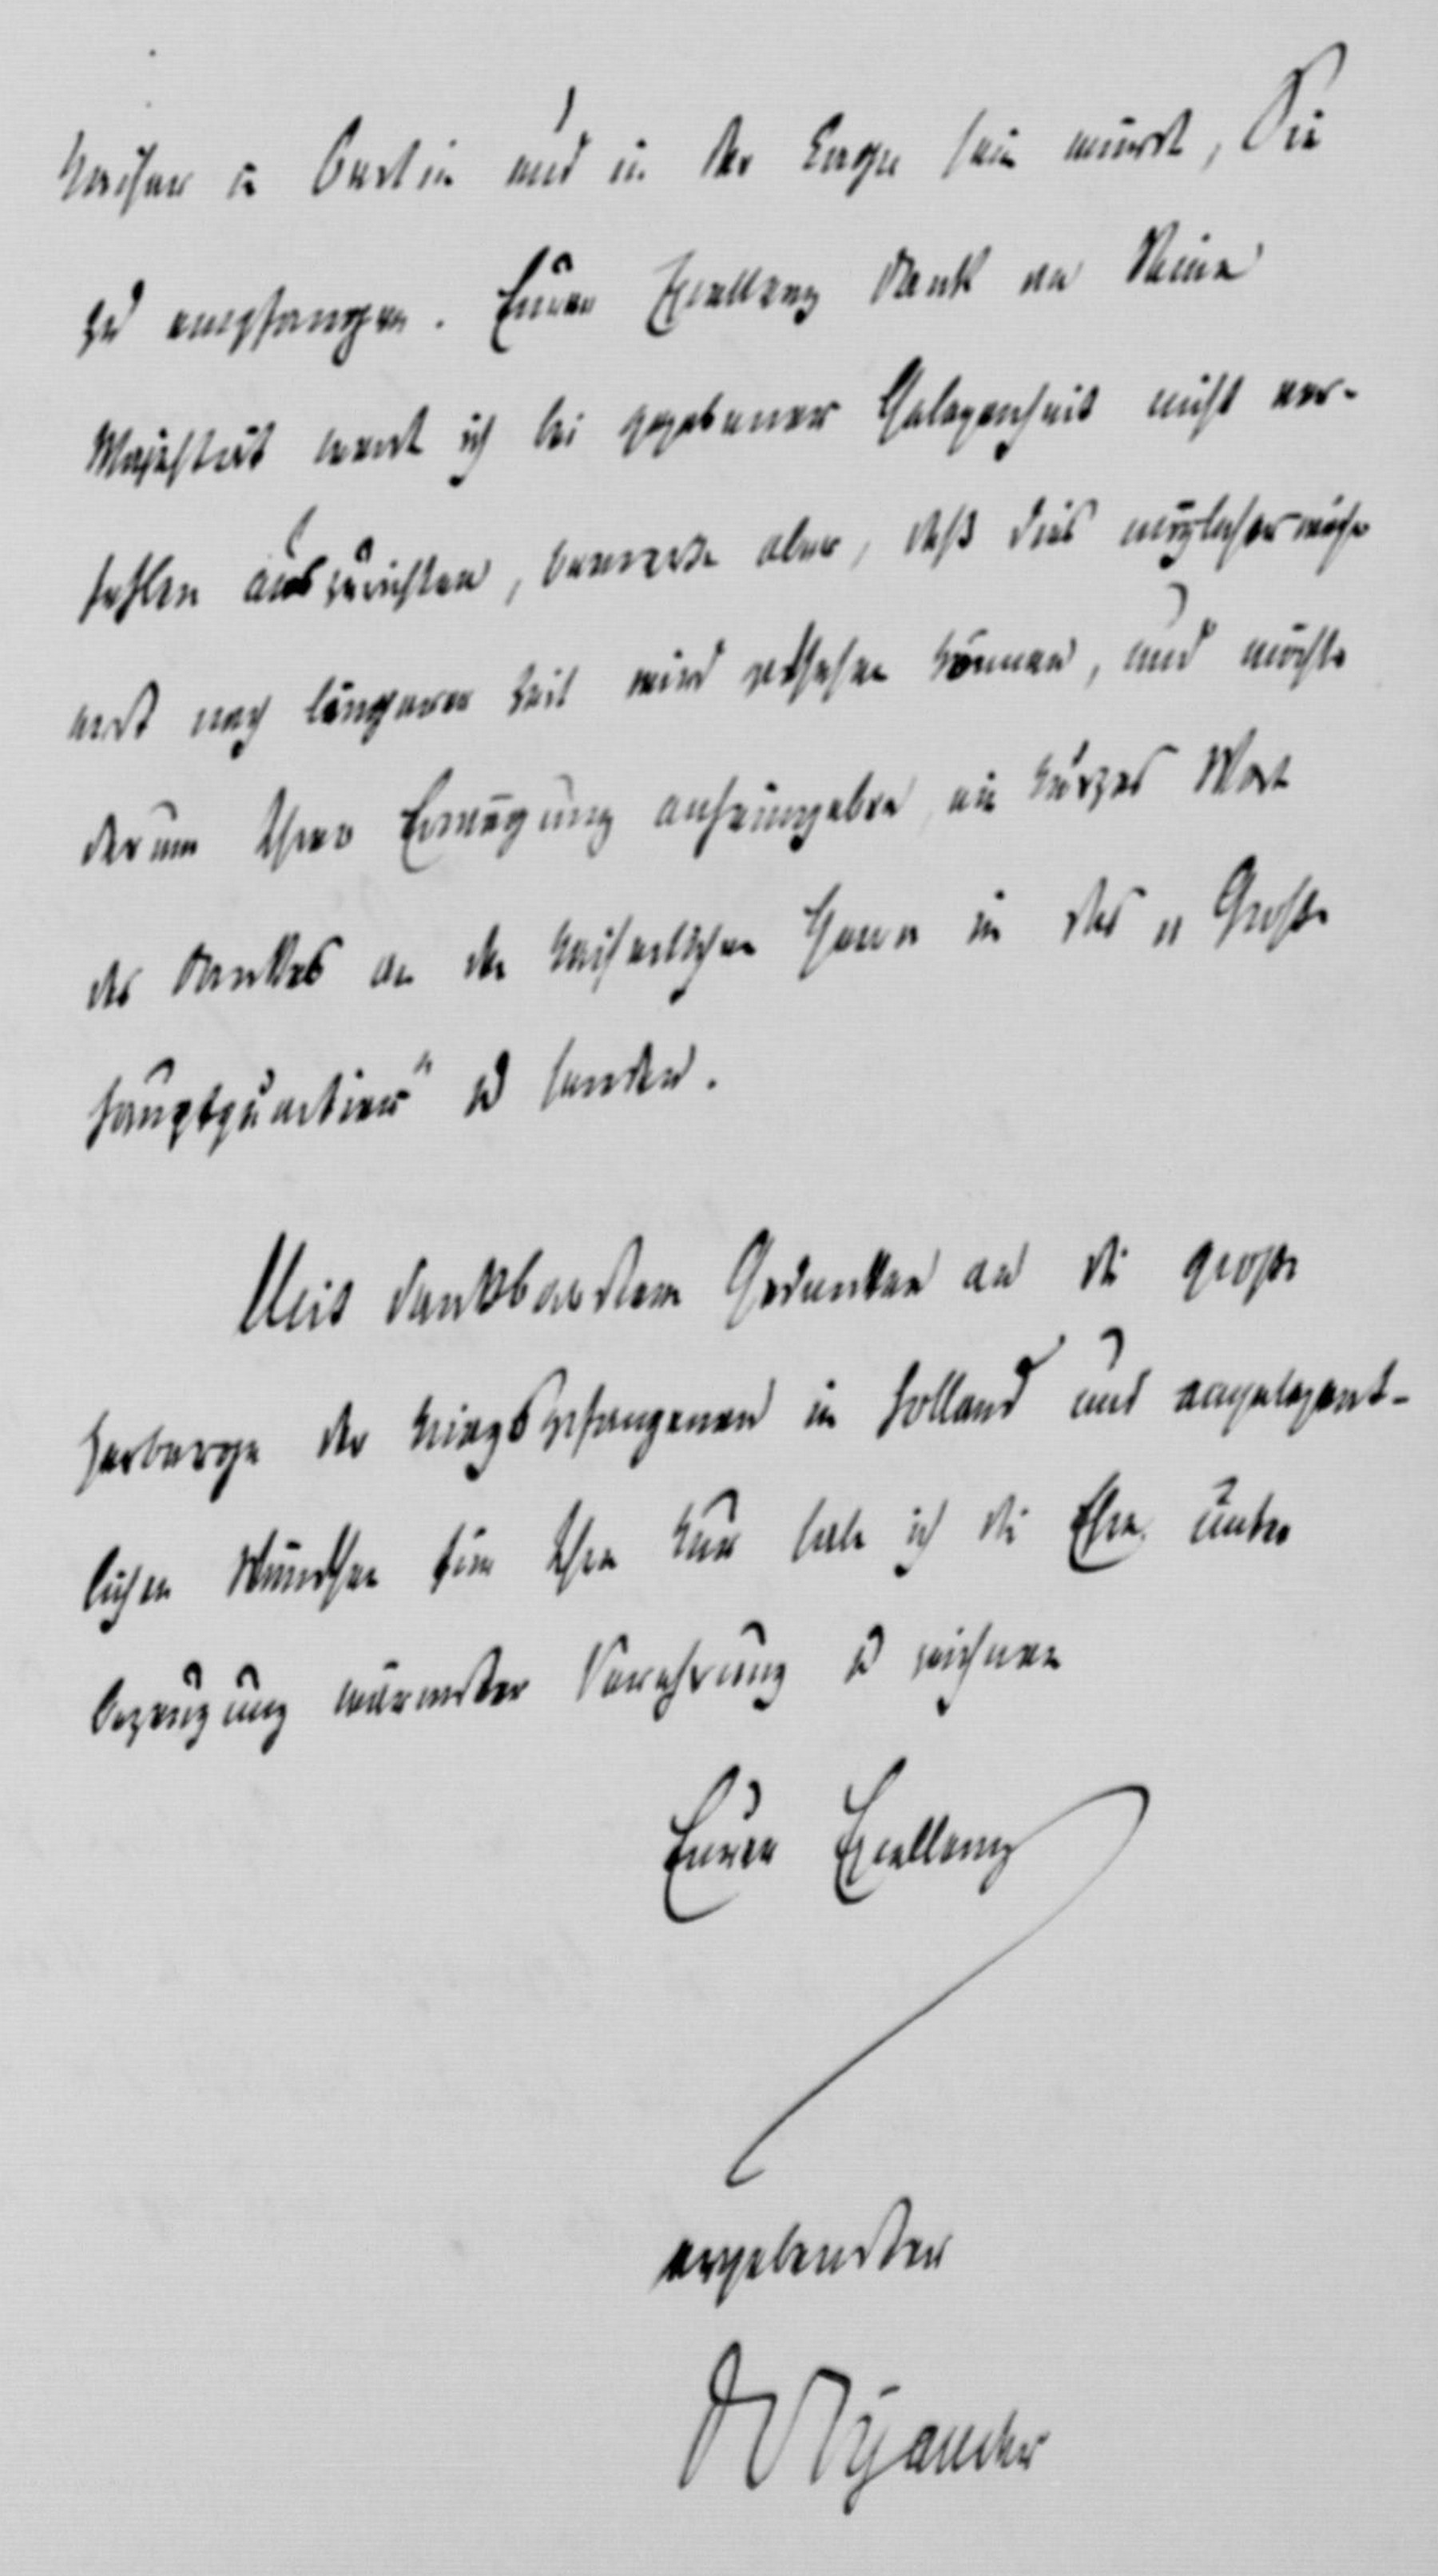 Kaiser in Berlin und in der Lage sein würde, Sie
zu empfangen. Eurer Excellenz Dank an Seine
Majestät werde ich bei gegebener Gelegenheit nicht ver-
fehlen auszurichten, bemerke aber, daß dies möglicherweise
erst nach längerer Zeit wird geschehen können, und möchte
darum Ihrer Erwägung anheimgeben, ein kurzes Wort
des Dankes an den Kaiserlichen Herrn in das „Große
Hauptquartier" zu senden.
Mit dankbarstem Gedenken an die große
Herberge der Kriegsgefangenen in Holland und angelegent-
lichen Wünschen für Ihre Kur habe ich die Ehre unter
Bezeugung wärmster Verehrung zu zeichnen
Eurer Excellenz
ergebenster